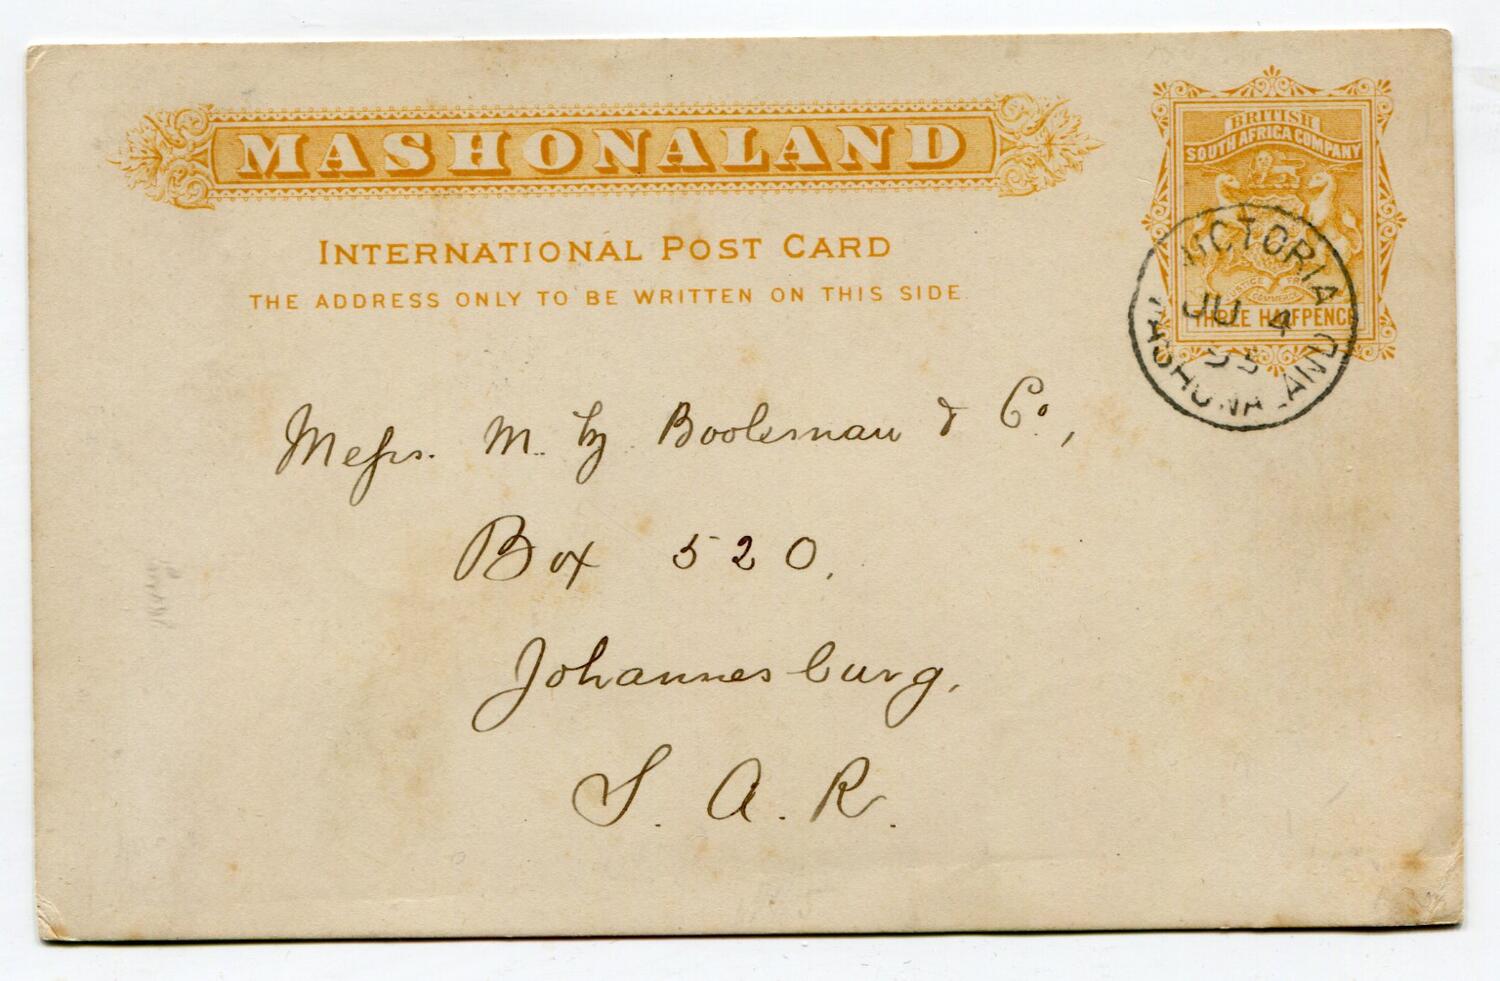 MASHONALAND
INTERNATIONAL POST CARD
THE ADDRESS ONLY TO BE WRITTEN ON THIS SIDE.
BRITISH
SOUTH AFRICA COMPANY
JUSTICE
COMMERCE
THREE HALFPENCE
VICTORIA
JU 4
MASHONALAND
Messrs. M. Booleman & Co.,
Box 520.
Johannesburg.
S. A. R.